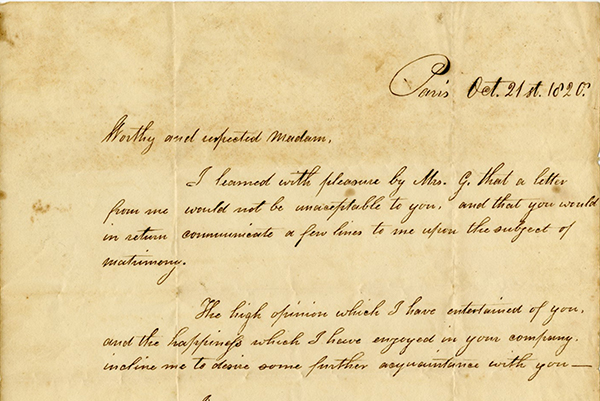 Paris Oct. 21st. 1820.
Worthy and respected Madam,
I learned with pleasure by Mrs. G. that a letter
from me would not be unacceptable to you, and that you would
in return communicate a few lines to me upon the subject of
matrimony.
The high opinion which I have entertained of you,
and the happiness which I have enjoyed in your company,
incline me to desire some further acquaintance with you—